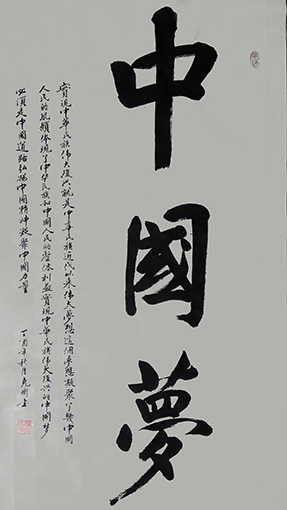 中國夢
實現中華民族偉大復興就是中華民族近代以來偉大夢想這個夢想凝聚了整中國
人民的夙願體現了中華民族和中國人民的整體利益實現中華民族偉大復興的中國夢
必須走中國道路弘揚中國精神凝聚中國力量
丁酉年秋月